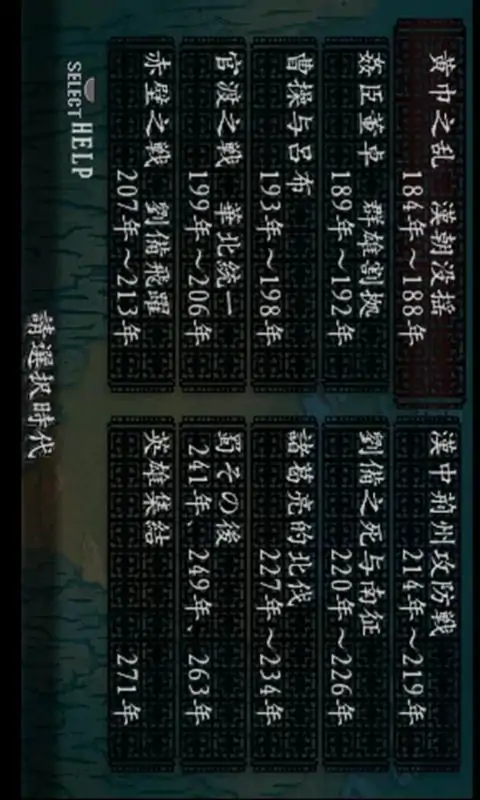 黄巾之乱 漢朝没揺
184年～188年
姦臣董卓 群雄割拠
189年～192年
曹操与呂布
193年～198年
官渡之戦 華北統一
199年～206年
赤壁之戦 劉備飛躍
207年～213年
漢中荊州攻防戦
214年～219年
劉備之死与南征
220年～226年
諸葛亮的北伐
227年～234年
蜀その後
241年、249年、263年
英雄集結
271年
SELECT HELP
請選択時代